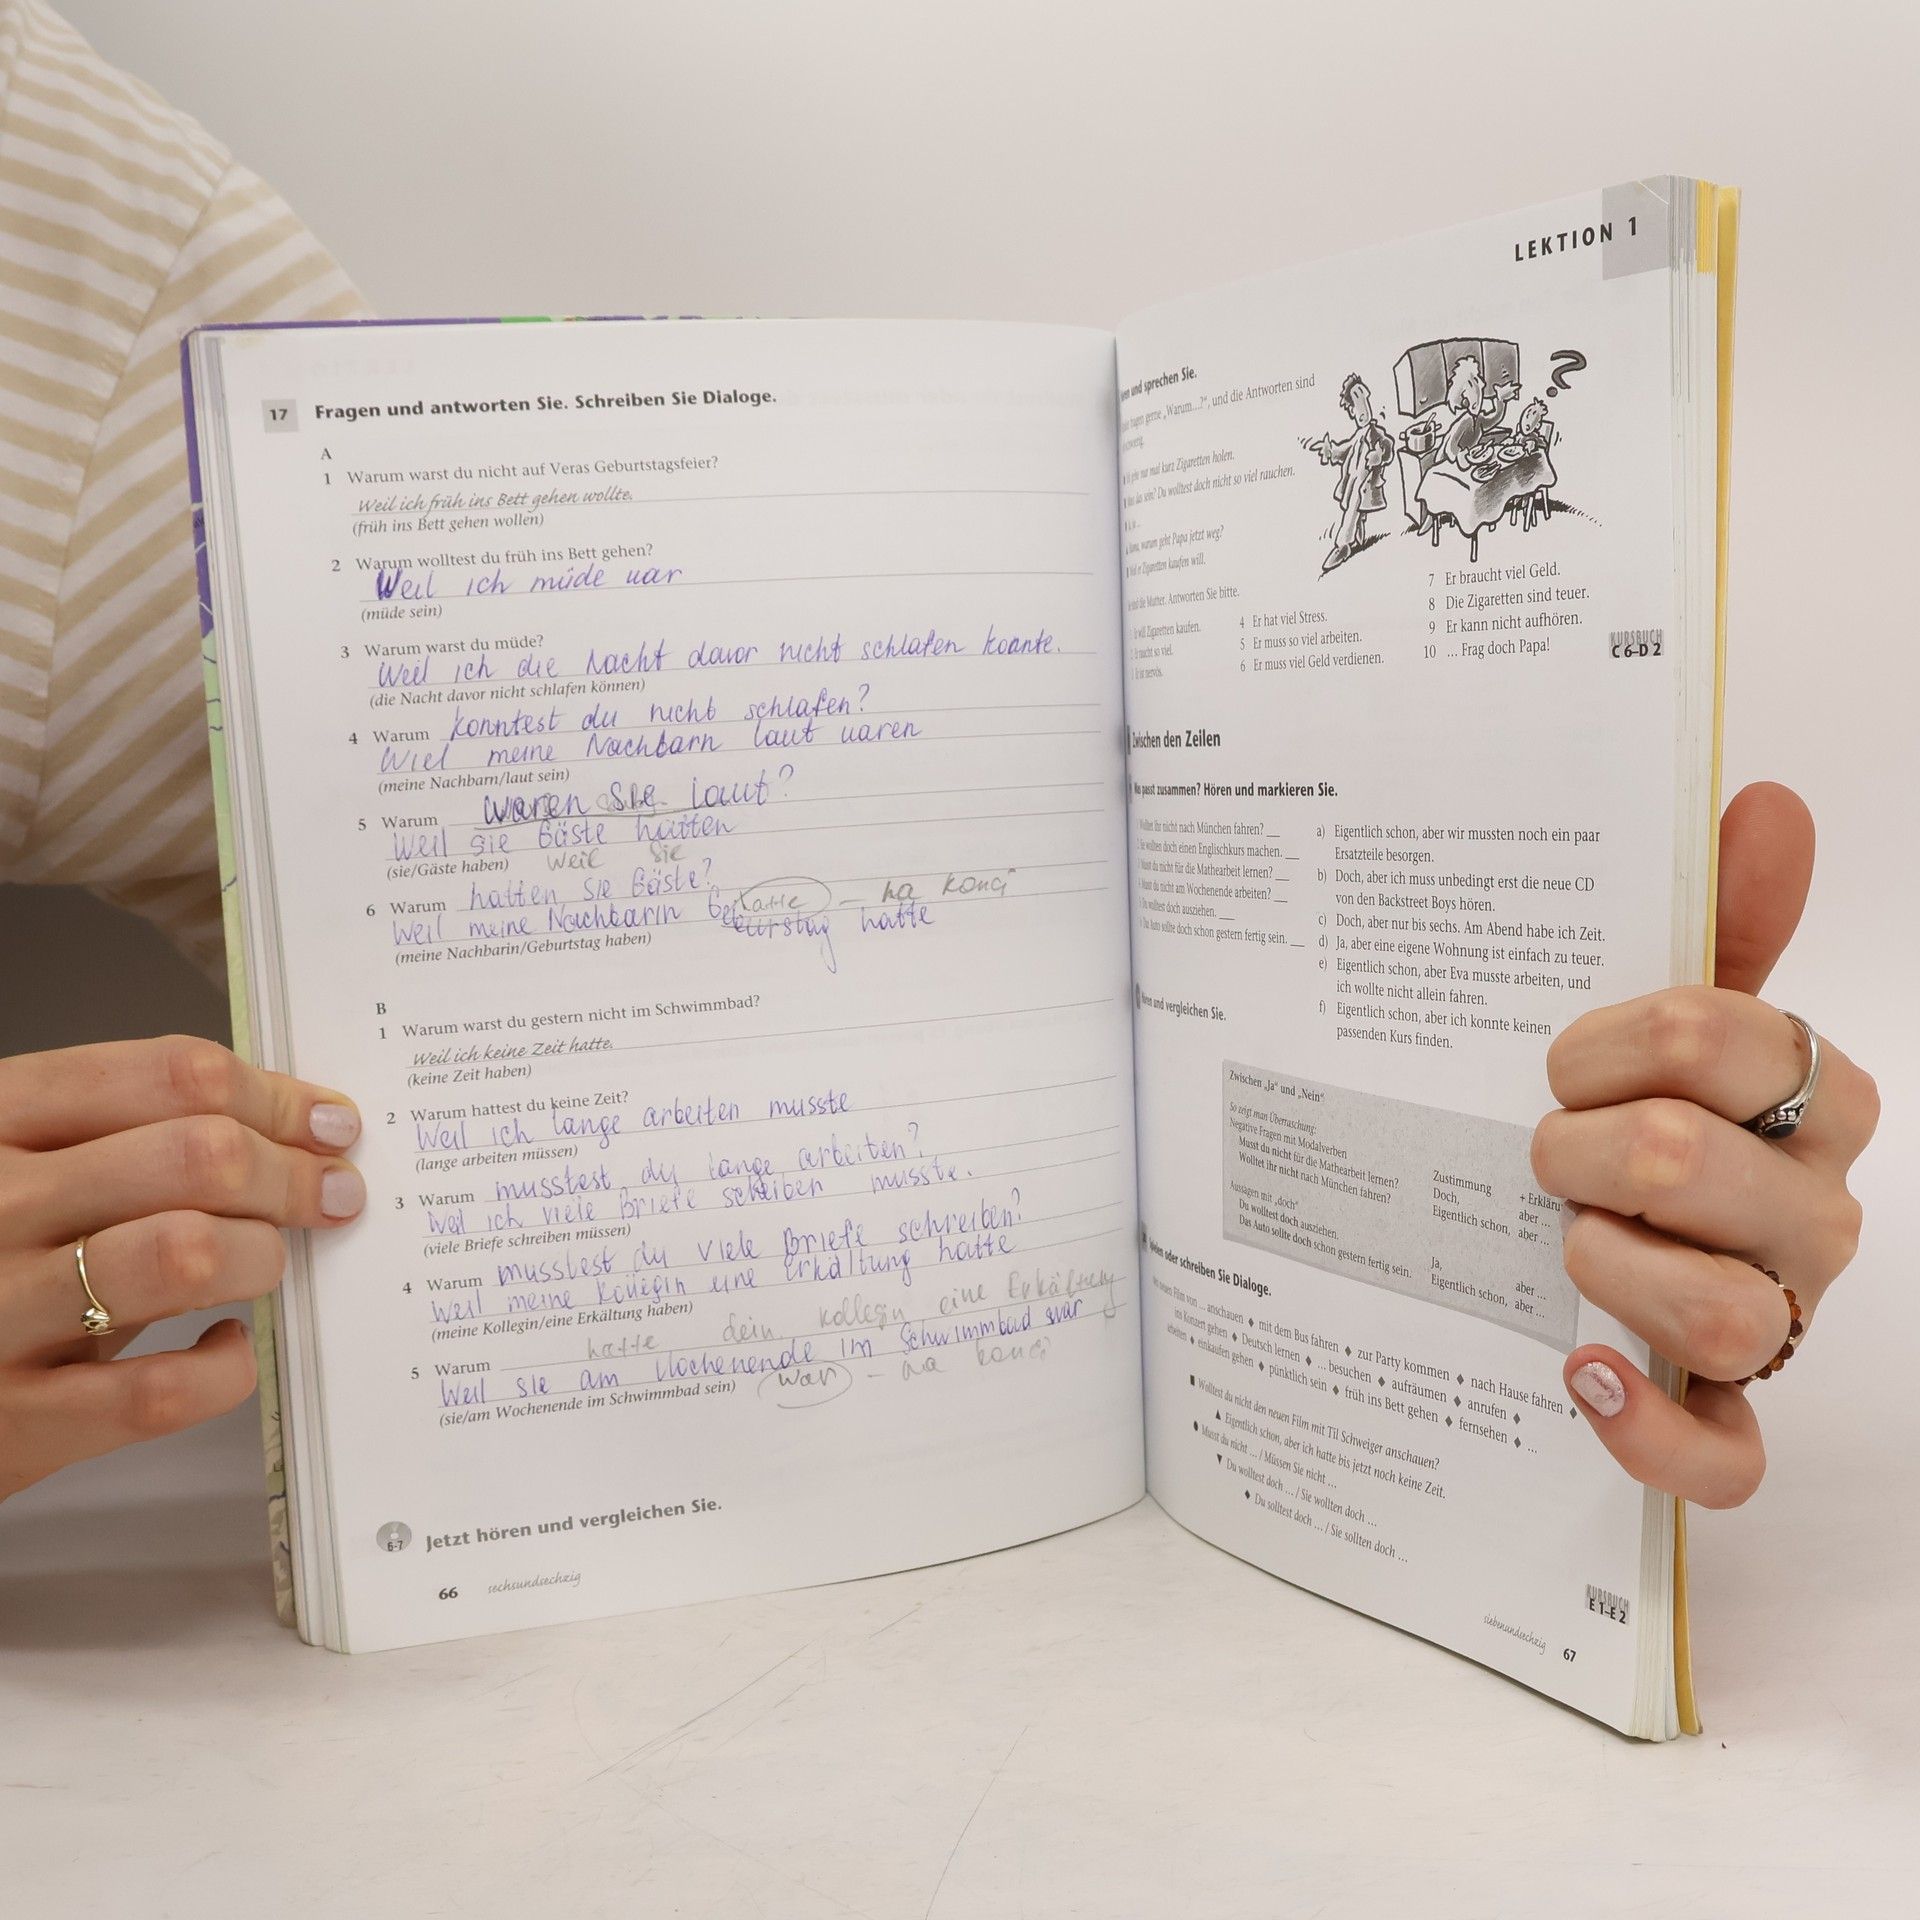 17 Fragen und antworten Sie. Schreiben Sie Dialoge.
A
1 Warum warst du nicht auf Veras Geburtstagsfeier?
Weil ich früh ins Bett gehen wollte.
(früh ins Bett gehen wollen)
2 Warum wolltest du früh ins Bett gehen?
Weil ich müde war
(müde sein)
3 Warum warst du müde?
Weil ich die Nacht davor nicht schlafen konnte.
(die Nacht davor nicht schlafen können)
4 Warum konntest du nicht schlafen?
Wiel meine Nachbarn laut waren
(meine Nachbarn/laut sein)
5 Warum waren sie laut?
Weil sie Gäste hatten
(sie/Gäste haben) weil sie
6 Warum hatten sie Gäste?
hatte – na konci
Weil meine Nachbarin hatte
(meine Nachbarin/Geburtstag haben)
B
1 Warum warst du gestern nicht im Schwimmbad?
Weil ich keine Zeit hatte.
(keine Zeit haben)
2 Warum hattest du keine Zeit?
Weil ich lange arbeiten musste
(lange arbeiten müssen)
3 Warum musstest du lange arbeiten?
Weil ich viele Briefe schreiben musste.
(viele Briefe schreiben müssen)
4 Warum musstest du viele Briefe schreiben?
Weil meine Kollegin eine Erkältung hatte
(meine Kollegin/eine Erkältung haben)
5 Warum hatte dein kollegin eine Erkältung
Weil sie am Wochenende im Schwimmbad war
(sie/am Wochenende im Schwimmbad sein) war – na konci
6-7 Jetzt hören und vergleichen Sie.
66 sechsundsechzig
LEKTION 1
und sprechen Sie.
gerne „Warum...?“, und die Antworten sind
nur mal kurz Zigaretten holen.
das sein? Du wolltest doch nicht so viel rauchen.
warum geht Papa jetzt weg?
er Zigaretten kaufen will.
die Mutter. Antworten Sie bitte.
will Zigaretten kaufen.
4 Er hat viel Stress.
5 Er muss so viel arbeiten.
6 Er muss viel Geld verdienen.
7 Er braucht viel Geld.
8 Die Zigaretten sind teuer.
9 Er kann nicht aufhören.
10 ... Frag doch Papa!
KURSBUCH
C 6–D 2
Zwischen den Zeilen
Was passt zusammen? Hören und markieren Sie.
Wolltet ihr nicht nach München fahren? __
Sie wollten doch einen Englischkurs machen. __
Musst du nicht für die Mathearbeit lernen? __
Musst du nicht am Wochenende arbeiten? __
Du wolltest doch ausziehen. __
Das Auto sollte doch schon gestern fertig sein. __
a) Eigentlich schon, aber wir mussten noch ein paar
Ersatzteile besorgen.
b) Doch, aber ich muss unbedingt erst die neue CD
von den Backstreet Boys hören.
c) Doch, aber nur bis sechs. Am Abend habe ich Zeit.
d) Ja, aber eine eigene Wohnung ist einfach zu teuer.
e) Eigentlich schon, aber Eva musste arbeiten, und
ich wollte nicht allein fahren.
f) Eigentlich schon, aber ich konnte keinen
passenden Kurs finden.
Hören und vergleichen Sie.
Zwischen „Ja“ und „Nein“
So zeigt man Überraschung:
Negative Fragen mit Modalverben
Musst du nicht für die Mathearbeit lernen?
Wolltet ihr nicht nach München fahren?
Zustimmung + Erkläru
Doch, aber ...
Eigentlich schon, aber ...
Aussagen mit „doch“
Du wolltest doch ausziehen.
Das Auto sollte doch schon gestern fertig sein.
Ja, aber ...
Eigentlich schon, aber ...
oder schreiben Sie Dialoge.
neuen Film von ... anschauen ♦ mit dem Bus fahren ♦ zur Party kommen ♦ nach Hause fahren ♦
ins Konzert gehen ♦ Deutsch lernen ♦ ... besuchen ♦ aufräumen ♦ anrufen ♦
arbeiten ♦ einkaufen gehen ♦ pünktlich sein ♦ früh ins Bett gehen ♦ fernsehen ♦ ...
■ Wolltest du nicht den neuen Film mit Til Schweiger anschauen?
▲ Eigentlich schon, aber ich hatte bis jetzt noch keine Zeit.
● Musst du nicht ... / Müssen Sie nicht ...
▼ Du wolltest doch ... / Sie wollten doch ...
♦ Du solltest doch ... / Sie sollten doch ...
KURSBUCH
E 1–E 2
siebenundsechzig 67